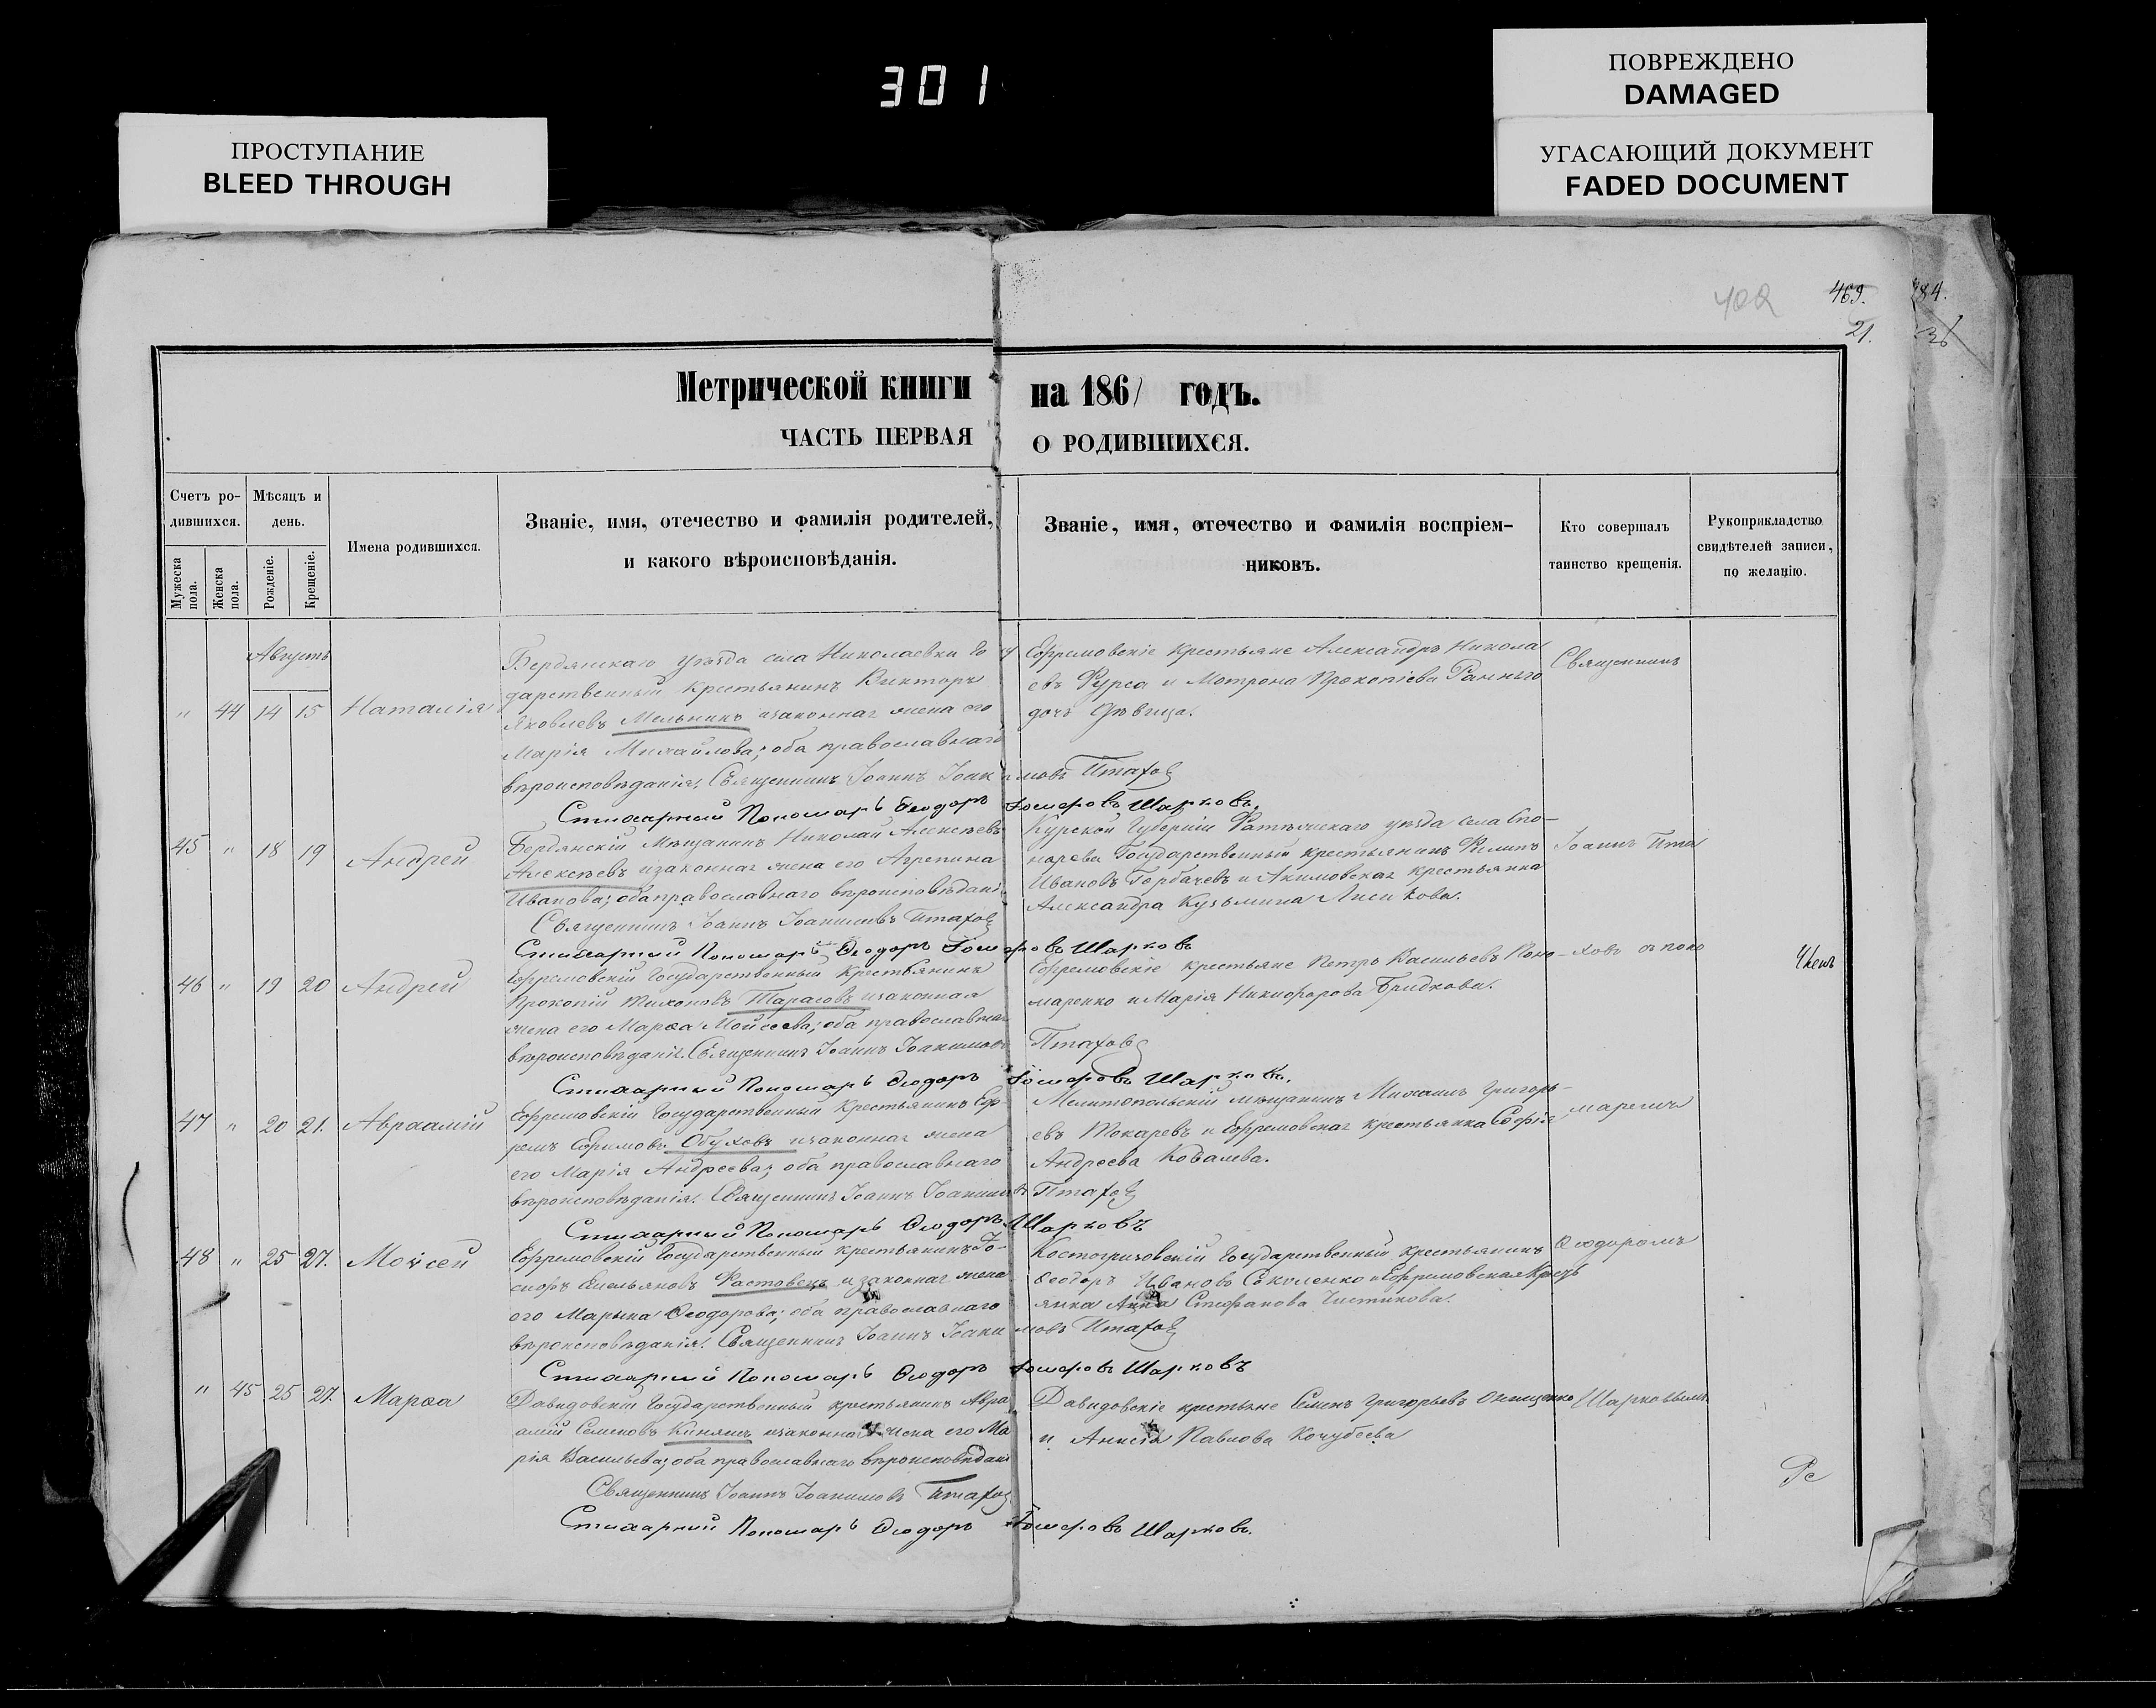 301
ПОВРЕЖДЕНО
DAMAGED
УГАСАЮЩИЙ ДОКУМЕНТ
FADED DOCUMENT
ПРОСТУПАНИЕ
BLEED THROUGH
402
469.
21.
Метрической книги на 1861 годъ.
ЧАСТЬ ПЕРВАЯ О РОДИВШИХСЯ.
Счетъ ро-
дившихся.
Мужеска
пола.
Женска
пола.
Мѣсяцъ и
день.
Рожденіе.
Крещеніе.
Имена родившихся.
Званіе, имя, отечество и фамилія родителей,
и какого вѣроисповѣданія.
Званіе, имя, отечество и фамилія воспріем-
никовъ.
Кто совершалъ
таинство крещенія.
Рукоприкладство
свидѣтелей записи,
по желанію.
Августъ
" 44 14 15 Наталія
Бердянскаго уѣзда села Николаевки Госу
дарственный крестьянинъ Викторъ
Яковлевъ Мельникъ изаконная жена его
Марія Михайлова; оба православнаго
вѣроисповѣданія. Священникъ Іоаннъ Іоакимовъ Птаховъ
Стихарный Пономарь Ѳеодоръ Шарковъ.
Ефремовскіе крестьяне Александръ Никола
евъ Фурса и Мотрона Прокопіева
дочь дѣвица.
Священникъ
45 " 18 19 Андрей
Бердянскій Мѣщанинъ Николай Алексѣевъ
Алексѣевъ изаконная жена его Агрепина
Иванова; оба православнаго вѣроисповѣданія
Священникъ Іоаннъ Іоакимовъ Птаховъ
Стихарный Пономарь Ѳеодоръ Шарковъ
Курской Губерніи уѣзда села
Государственный крестьянинъ Филипъ
Ивановъ Горбачевъ и Акимовская крестьянка
Александра Кузьмина
Іоаннъ Пта
46 " 19 20 Андрей
Ефремовскій Государственный Крестьянинъ
Прокопій Тихоновъ Тарасовъ изаконная
жена его Марѳа Мойсеева; оба православнаго
вѣроисповѣданія. Священникъ Іоаннъ Іоакимовъ Птаховъ
Стихарный Пономарь Ѳеодоръ Шарковъ.
Ефремовскіе крестьяне Петръ Васильевъ Поно-
маренко и Марія Никифорова Бридкова.
ховъ съ поно
47 " 20 21. Авраамій
Ефремовскій Государственный Крестьянинъ Еф-
ремъ Ефимовъ Обуховъ изаконная жена
его Марія Андреева; оба православнаго
вѣроисповѣданія. Священникъ Іоаннъ Іоакимовъ Птаховъ
Стихарный Пономарь Ѳеодоръ Шарковъ
Мелитопольскій мѣщанинъ Михаилъ Григорь-
евъ Токаревъ и Ефремовская крестьянка Софія
Андреева Ковалева.
маремъ
48 " 25 27. Моѵсей
Ефремовскій Государственный крестьянинъ Іо-
сифъ Емельяновъ Фастовецъ изаконная жена
его Марьяна Ѳеодорова; оба православнаго
вѣроисповѣданія. Священникъ Іоаннъ Іоакимовъ Птаховъ
Стихарный Пономарь Ѳеодоръ Шарковъ
Костогризовскій Государственный крестьянинъ
Ѳеодоръ Ивановъ Соколенко и Ефремовская Кресть
янка Анна Стефанова Чистикова.
Ѳеодоромъ
" 45 25 27. Марѳа
Давидовскій Государственный крестьянинъ Авра
амій Семеновъ Кинямъ изаконная жена его Ма
рія Васильева; оба православнаго вѣроисповѣданія
Священникъ Іоаннъ Іоакимовъ Птаховъ
Стихарный Пономарь Ѳеодоръ Шарковъ.
Давидовскіе крестьяне Семенъ Григорьевъ Онищенко
и Анисія Павлова Кочубеева
Шарковымъ.